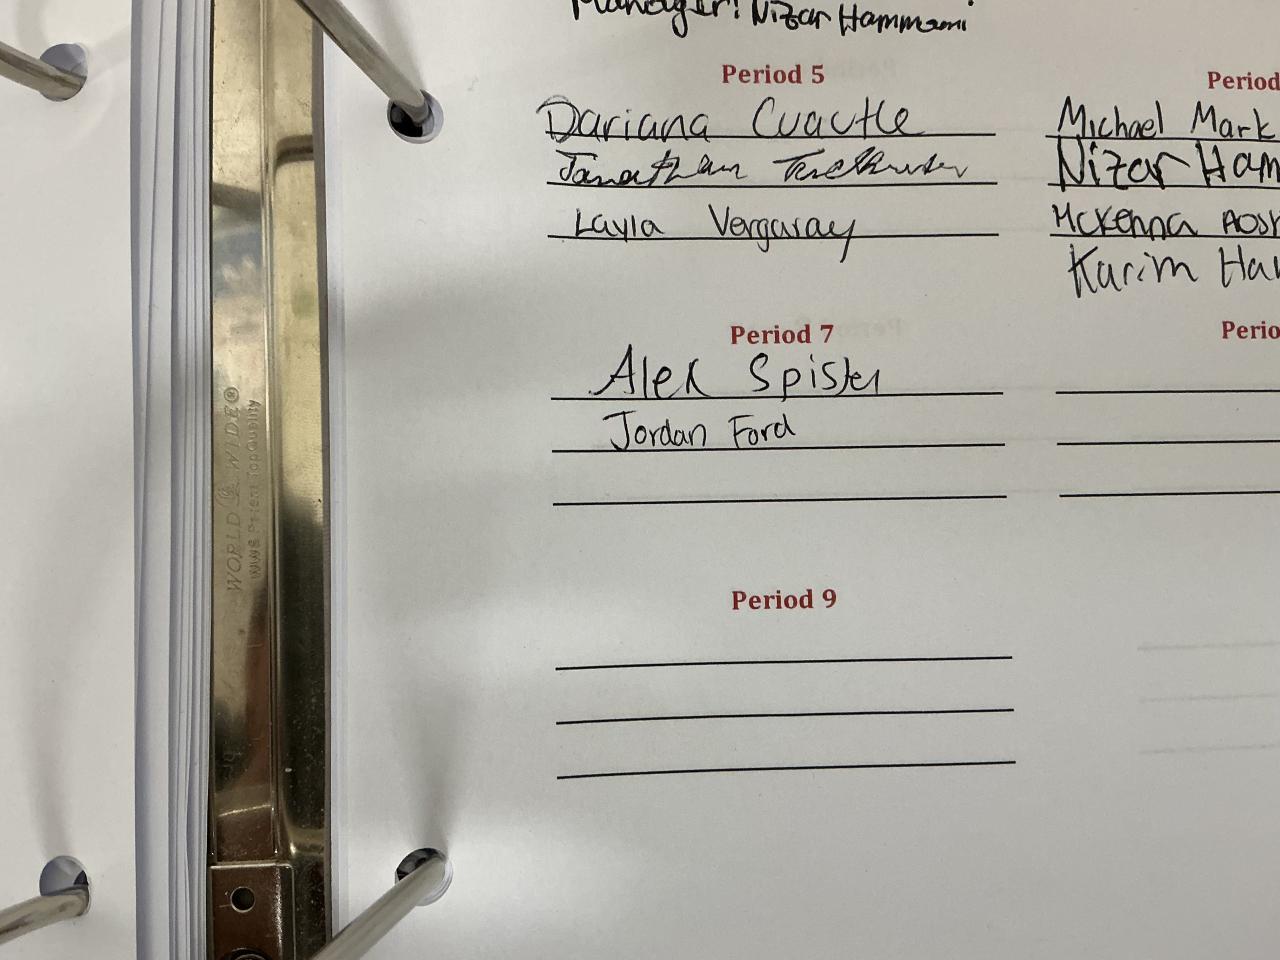 Manager: Nizar Hammami
Period 5
Dariana Cuautle
Jonathan
Layla Vergaray
Period
Michael Mark
Nizar Ham
McKenna
Karim Ha
Period 7
Alex Spisler
Jordan Ford
Perio
Period 9
WORLD WIDE®
WWS Patent TopQuality